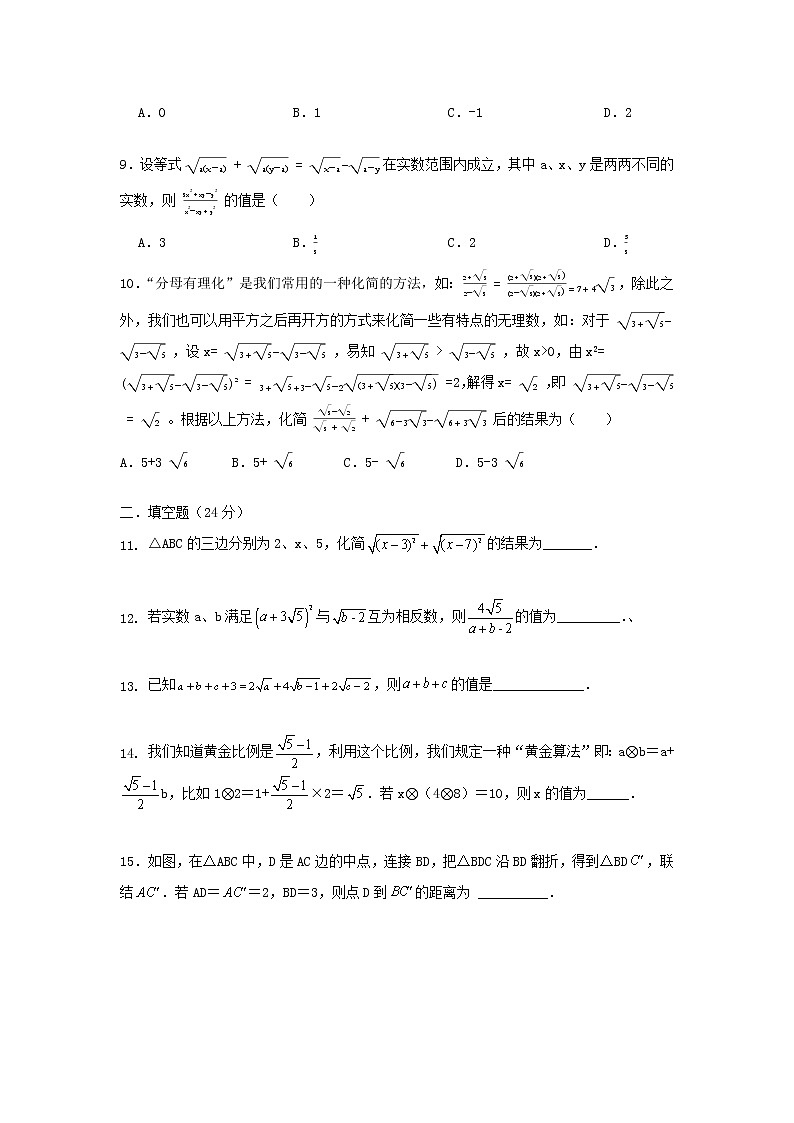 A.0 B.1 C.-1 D.2
9.设等式√a(x-a) + √a(y-a) = √x-a-√a-y在实数范围内成立,其中 a、x、y 是两两不同的
实数,则 (3x²+xy-y²)/(x²-xy+y²) 的值是( )
A.3 B.1/3 C.2 D.5/3
10.“分母有理化”是我们常用的一种化简的方法,如:(2+√3)/(2-√3) = ((2+√3)(2+√3))/((2-√3)(2+√3)) =7+4√3,除此之
外,我们也可以用平方之后再开方的方式来化简一些有特点的无理数,如:对于 √(3+√5)-
√(3-√5) ,设 x= √(3+√5)-√(3-√5) ,易知 √(3+√5) > √(3-√5) ,故 x>0,由 x²=
(√(3+√5)-√(3-√5))² = 3+√5+3-√5-2√((3+√5)(3-√5)) =2,解得 x= √2 ,即 √(3+√5)-√(3-√5)
= √2 。根据以上方法,化简 (√3-√2)/(√3+√2) + √(6-3√3)-√(6+3√3) 后的结果为( )
A.5+3 √6 B.5+ √6 C.5- √6 D.5-3 √6
二.填空题(24 分)
11. △ABC 的三边分别为 2、x、5,化简√(x-3)²+√(x-7)²的结果为_______.
12. 若实数 a、b 满足(a+3√5)²与√b-2互为相反数,则4√5/(a+b-2)的值为_________.、
13. 已知a+b+c+3=2√a+4√b-1+2√c-2,则a+b+c的值是_____________.
14. 我们知道黄金比例是(√5-1)/2,利用这个比例,我们规定一种“黄金算法”即:a⊗b=a+
(√5-1)/2b,比如 1⊗2=1+(√5-1)/2×2=√5.若 x⊗(4⊗8)=10,则 x 的值为______.
15.如图,在△ABC 中,D 是 AC 边的中点,连接 BD,把△BDC 沿 BD 翻折,得到△BDC′,联
结AC′.若 AD=AC′=2,BD=3,则点 D 到BC′的距离为 __________.